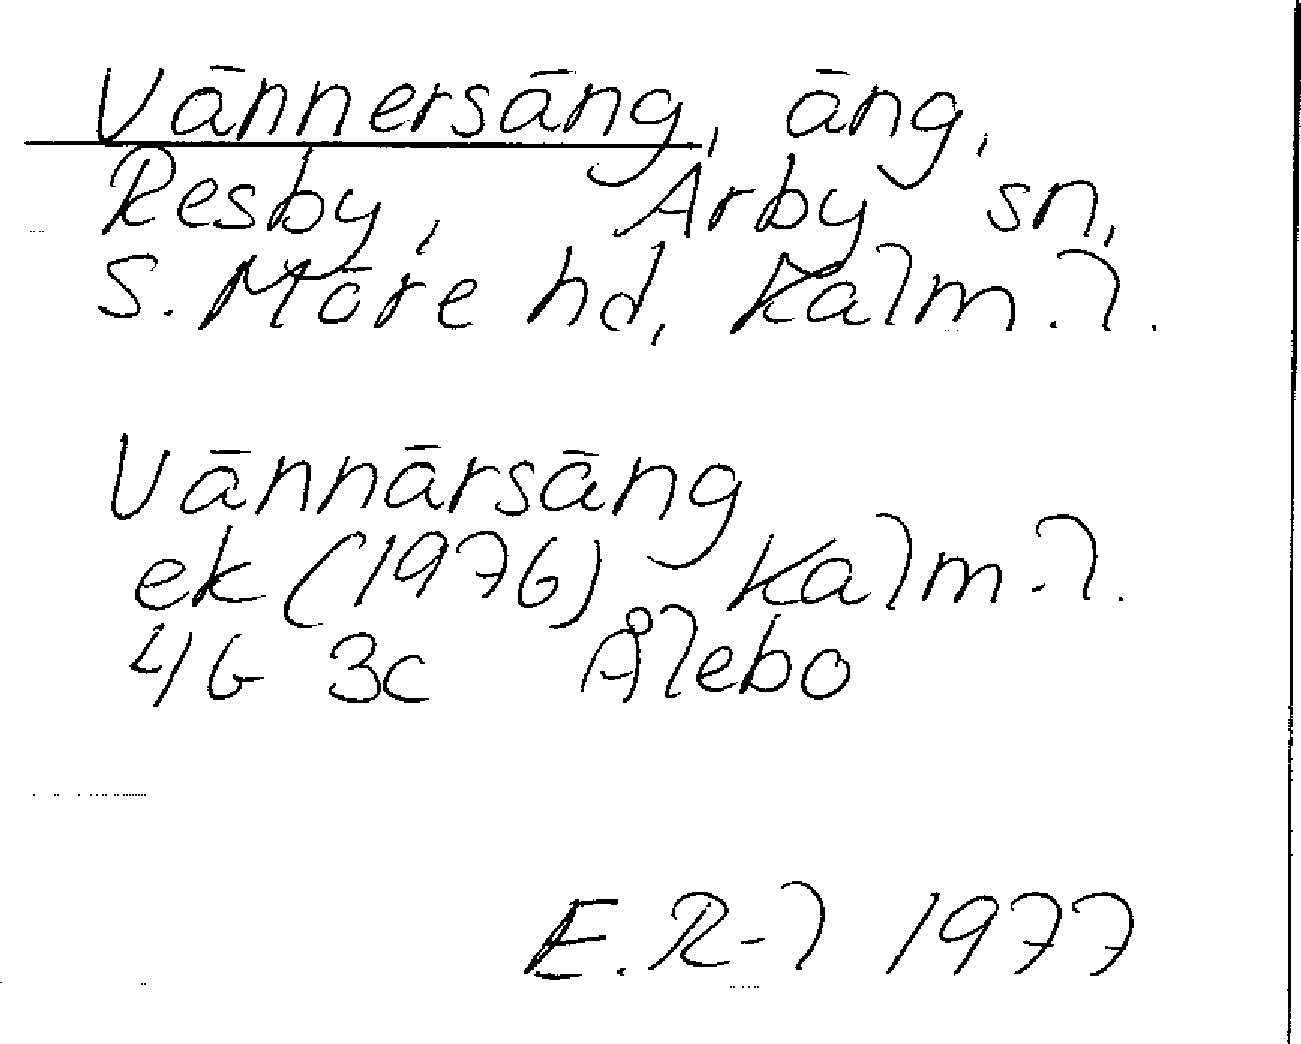 Vännersäng, äng,
Resby, Arby sn,
S. Möre hd, Kalm. l.
Vännärsäng
ek (1976) Kalm. l.
4G 3c Ålebo
E. R-l 1977